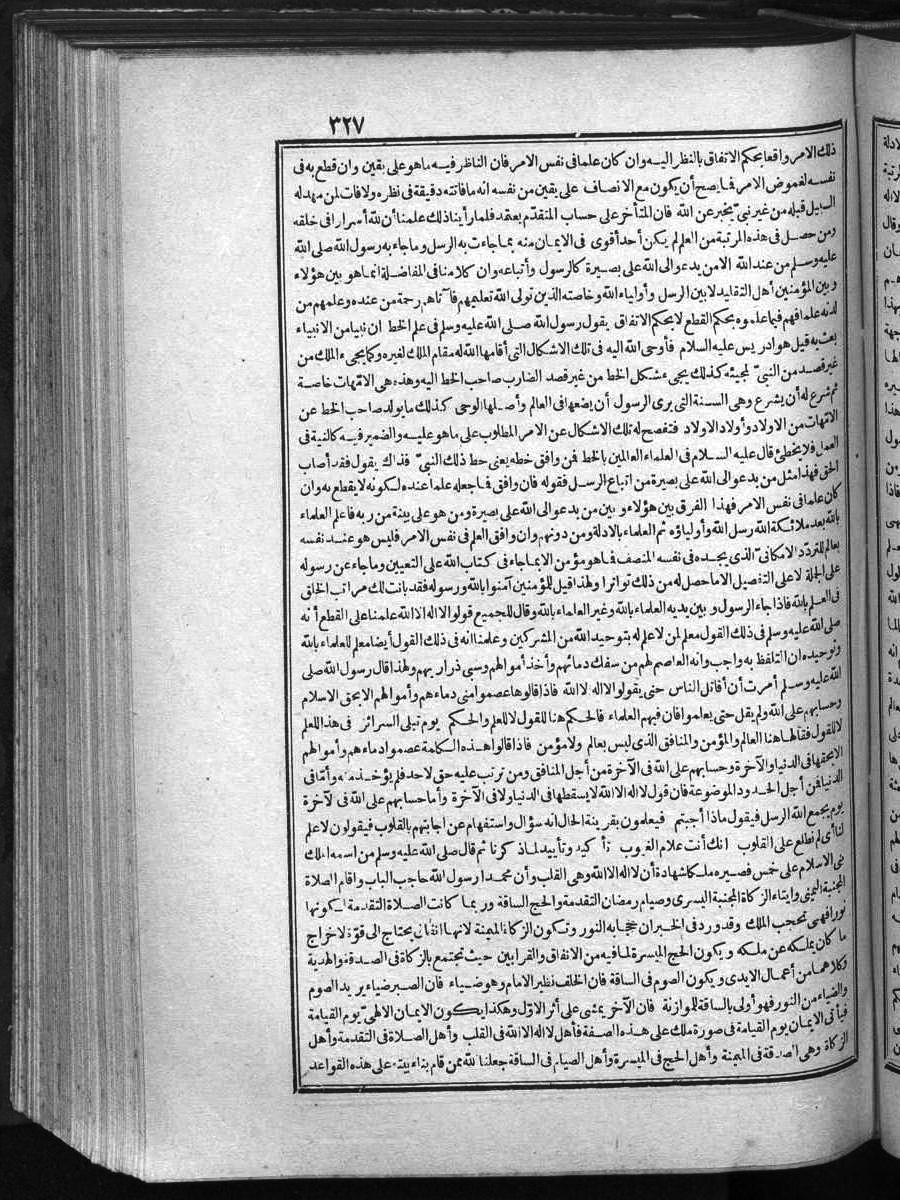 ٣٢٧
ذلك الامر واقعا بحكم الاتفاق بالنظر اليه وان كان علما فى نفس الامر فان الناظر فيه ما هو على يقين وان قطع به فى
نفسه لغموض الامر فما يصح أن يكون مع الانصاف على يقين من نفسه انه ما فاتته دقيقة فى نظره ولا فات لمن مهد له
السبيل قبله من غير نبىّ يخبر عن الله فان المتأخر على حساب المتقدّم يعتمد فلما رأينا ذلك علمنا أن لله أسرارا فى خلقه
ومن حصل فى هذه المرتبة من العلم لم يكن أحد أقوى فى الايمان منه بما جاءت به الرسل وما جاء به رسول الله صلى الله
عليه وسلم من عند الله الا من يدعو الى الله على بصيرة كالرسول وأتباعه وان كلامنا فى المفاضلة انما هو بين هؤلاء
وبين المؤمنين أهل التقليد لا بين الرسل وأولياء الله وخاصته الذين تولى الله تعليمهم فآتاهم رحمة من عنده وعلمهم من
لدنه علما فهم فيما علموه بحكم القطع لا بحكم الاتفاق يقول رسول الله صلى الله عليه وسلم فى علم الخط ان نبيا من الانبياء
بعث به قيل هو ادريس عليه السلام فأوحى الله اليه فى تلك الاشكال التى أقامها الله له مقام الملك لغيره وكما يجىء الملك من
غير قصد من النبىّ لمجيئه كذلك يجىء شكل الخط من غير قصد الضارب صاحب الخط اليه وهذه هى الامّهات خاصة
ثم شرع له أن يشرع وهى السنة التى يرى الرسول أن يضعها فى العالم وأصلها الوحى كذلك ما يولد صاحب الخط عن
الامّهات من الاولاد وأولاد الاولاد فتفصح له تلك الاشكال عن الامر المطلوب على ما هو عليه والضمير فيه كالنية فى
العمل فلا يخطئ قال عليه السلام فى العلماء العالمين بالخط فمن وافق خطه يعنى خط ذلك النبىّ فذاك يقول فقد أصاب
الحق فهذا مثل من يدعو الى الله على بصيرة من اتباع الرسل فقوله فان وافق فما جعله علما عنده لكونه لا يقطع به وان
كان علما فى نفس الامر فهذا الفرق بين هؤلاء وبين من يدعو الى الله على بصيرة ومن هو على بينة من ربه فاعلم العلماء
بالله بعد ملائكة الله رسل الله وأولياؤه ثم العلماء بالادلة ومن دونهم وان وافق العلم فى نفس الامر فليس هو عند نفسه
بعالم للتردّد الامكانىّ الذى يجده فى نفسه المنصف فما هو مؤمن الا بما جاء فى كتاب الله على التعيين وما جاء عن رسوله
على الجملة لا على التفصيل الا ما حصل له من ذلك تواترا ولهذا قيل للمؤمنين آمنوا بالله ورسوله فقد بانت لك مراتب الخلق
فى العلم بالله فاذا جاء الرسول وبين يديه العلماء بالله وغير العلماء بالله وقال للجميع قولوا لا اله الا الله علمنا على القطع أنه
صلى الله عليه وسلم فى ذلك القول معلم لمن لا علم له بتوحيد الله من المشركين وعلمنا انه فى ذلك القول أيضا معلم للعلماء بالله
وتوحيده ان التلفظ به واجب وانه العاصم لهم من سفك دمائهم وأخذ أموالهم وسبى ذراريهم ولهذا قال رسول الله صلى
الله عليه وسلم أمرت أن أقاتل الناس حتى يقولوا لا اله الا الله فاذا قالوها عصموا منى دماءهم وأموالهم الا بحق الاسلام
وحسابهم على الله ولم يقل حتى يعلموا فان فيهم العلماء فالحكم هنا للقول لا للعلم والحكم يوم تبلى السرائر فى هذا للعلم
لا للقول فقالها هنا العالم والمؤمن والمنافق الذى ليس بعالم ولا مؤمن فاذا قالوا هذه الكلمة عصموا دماءهم وأموالهم
الا بحقها فى الدنيا والآخرة وحسابهم على الله فى الآخرة من أجل المنافق ومن ترتب عليه حق لاحد فلم يؤخذ منه وأمّا فى
الدنيا فمن أجل الحدود الموضوعة فان قول لا اله الا الله لا يسقطها فى الدنيا ولا فى الآخرة وأما حسابهم على الله فى الآخرة
يوم يجمع الله الرسل فيقول ماذا أجبتم فيعلمون بقرينة الحال انه سؤال واستفهام عن اجابتهم بالقلوب فيقولون لا علم
لنا أى لم نطلع على القلوب انك أنت علام الغيوب تأكيد وتأييد لما ذكرنا ثم قال صلى الله عليه وسلم من اسمه الملك
بنى الاسلام على خمس فصيره ملكا شهادة أن لا اله الا الله وهى القلب وأن محمدا رسول الله حاجب الباب واقام الصلاة
المجنبة اليمنى وايتاء الزكاة المجنبة اليسرى وصيام رمضان التقدمة والحج الساقة وربما كانت الصلاة التقدمة لكونها
نورا فهى تحجب الملك وقد ورد فى الخبر ان حجابه النور وتكون الزكاة الميمنة لانها انفاق يحتاج الى قوّة لاخراج
ما كان يملكه عن ملكه ويكون الحج الميسرة لما فيه من الانفاق والقرابين حيث تجتمع بالزكاة فى الصدقة والهدية
وكلاهما من أعمال الايدى ويكون الصوم فى الساقة فان الخلف نظير الامام وهو ضياء فان الصبر ضياء يريد الصوم
والضياء من النور فهو أولى بالساقة للموازنة فان الآخر يمشى على أثر الاوّل وهكذا يكون الايمان الالهىّ يوم القيامة
فيأتى الايمان يوم القيامة فى صورة ملك على هذه الصفة فأهل لا اله الا الله فى القلب وأهل الصلاة فى التقدمة وأهل
الزكاة وهى الصدقة فى الميمنة وأهل الحج فى الميسرة وأهل الصيام فى الساقة جعلنا الله ممن قام بناء بيته على هذه القواعد